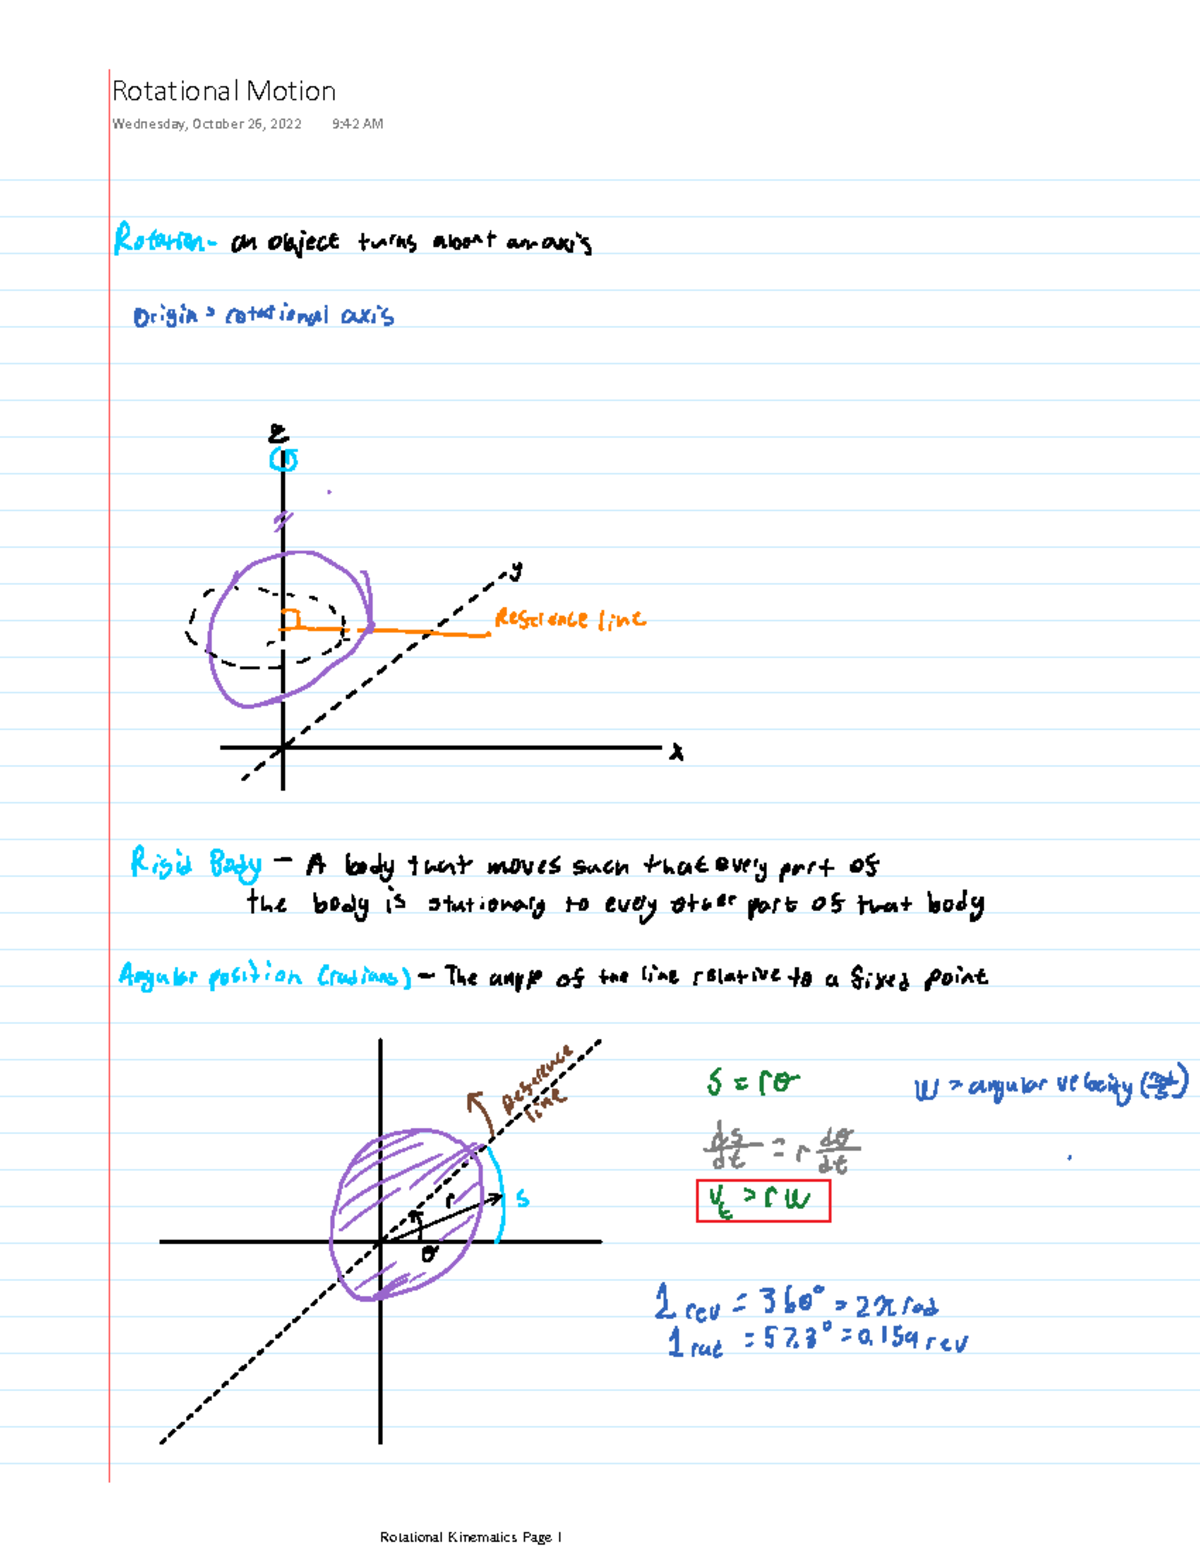 Rotational Motion
Wednesday, October 26, 2022 9:42 AM
Rotation - an object turns about an axis
Origin > rotational axis
z
y
Reference line
x
Rigid Body - A body that moves such that every part of
the body is stationary to every other part of that body
Angular position (radians) - The angle of the line relative to a fixed point
Reference
line
r
s
θ
S = rθ
ω > angular velocity (rad/s)
ds/dt = r dθ/dt
Vt > rω
1 rev = 360° = 2π rad
1 rad = 57.3° = 0.159 rev
Rotational Kinematics Page 1